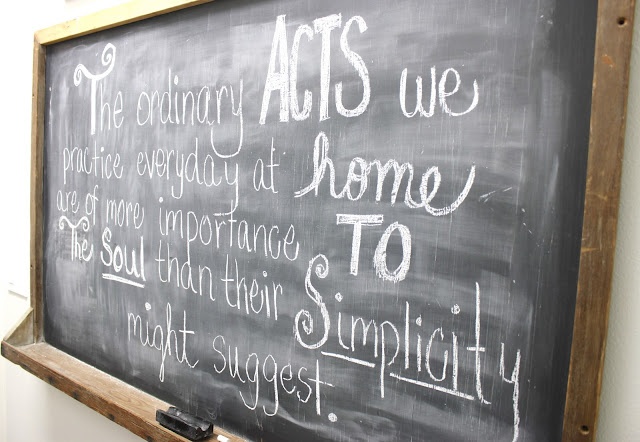 The ordinary ACTS we
practice everyday at home
are of more importance TO
The Soul than their Simplicity
might suggest.